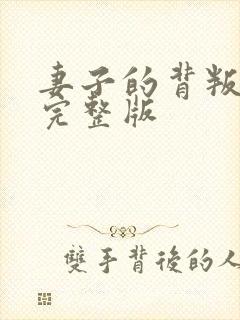 妻子的背叛
完整版
雙手背後的人